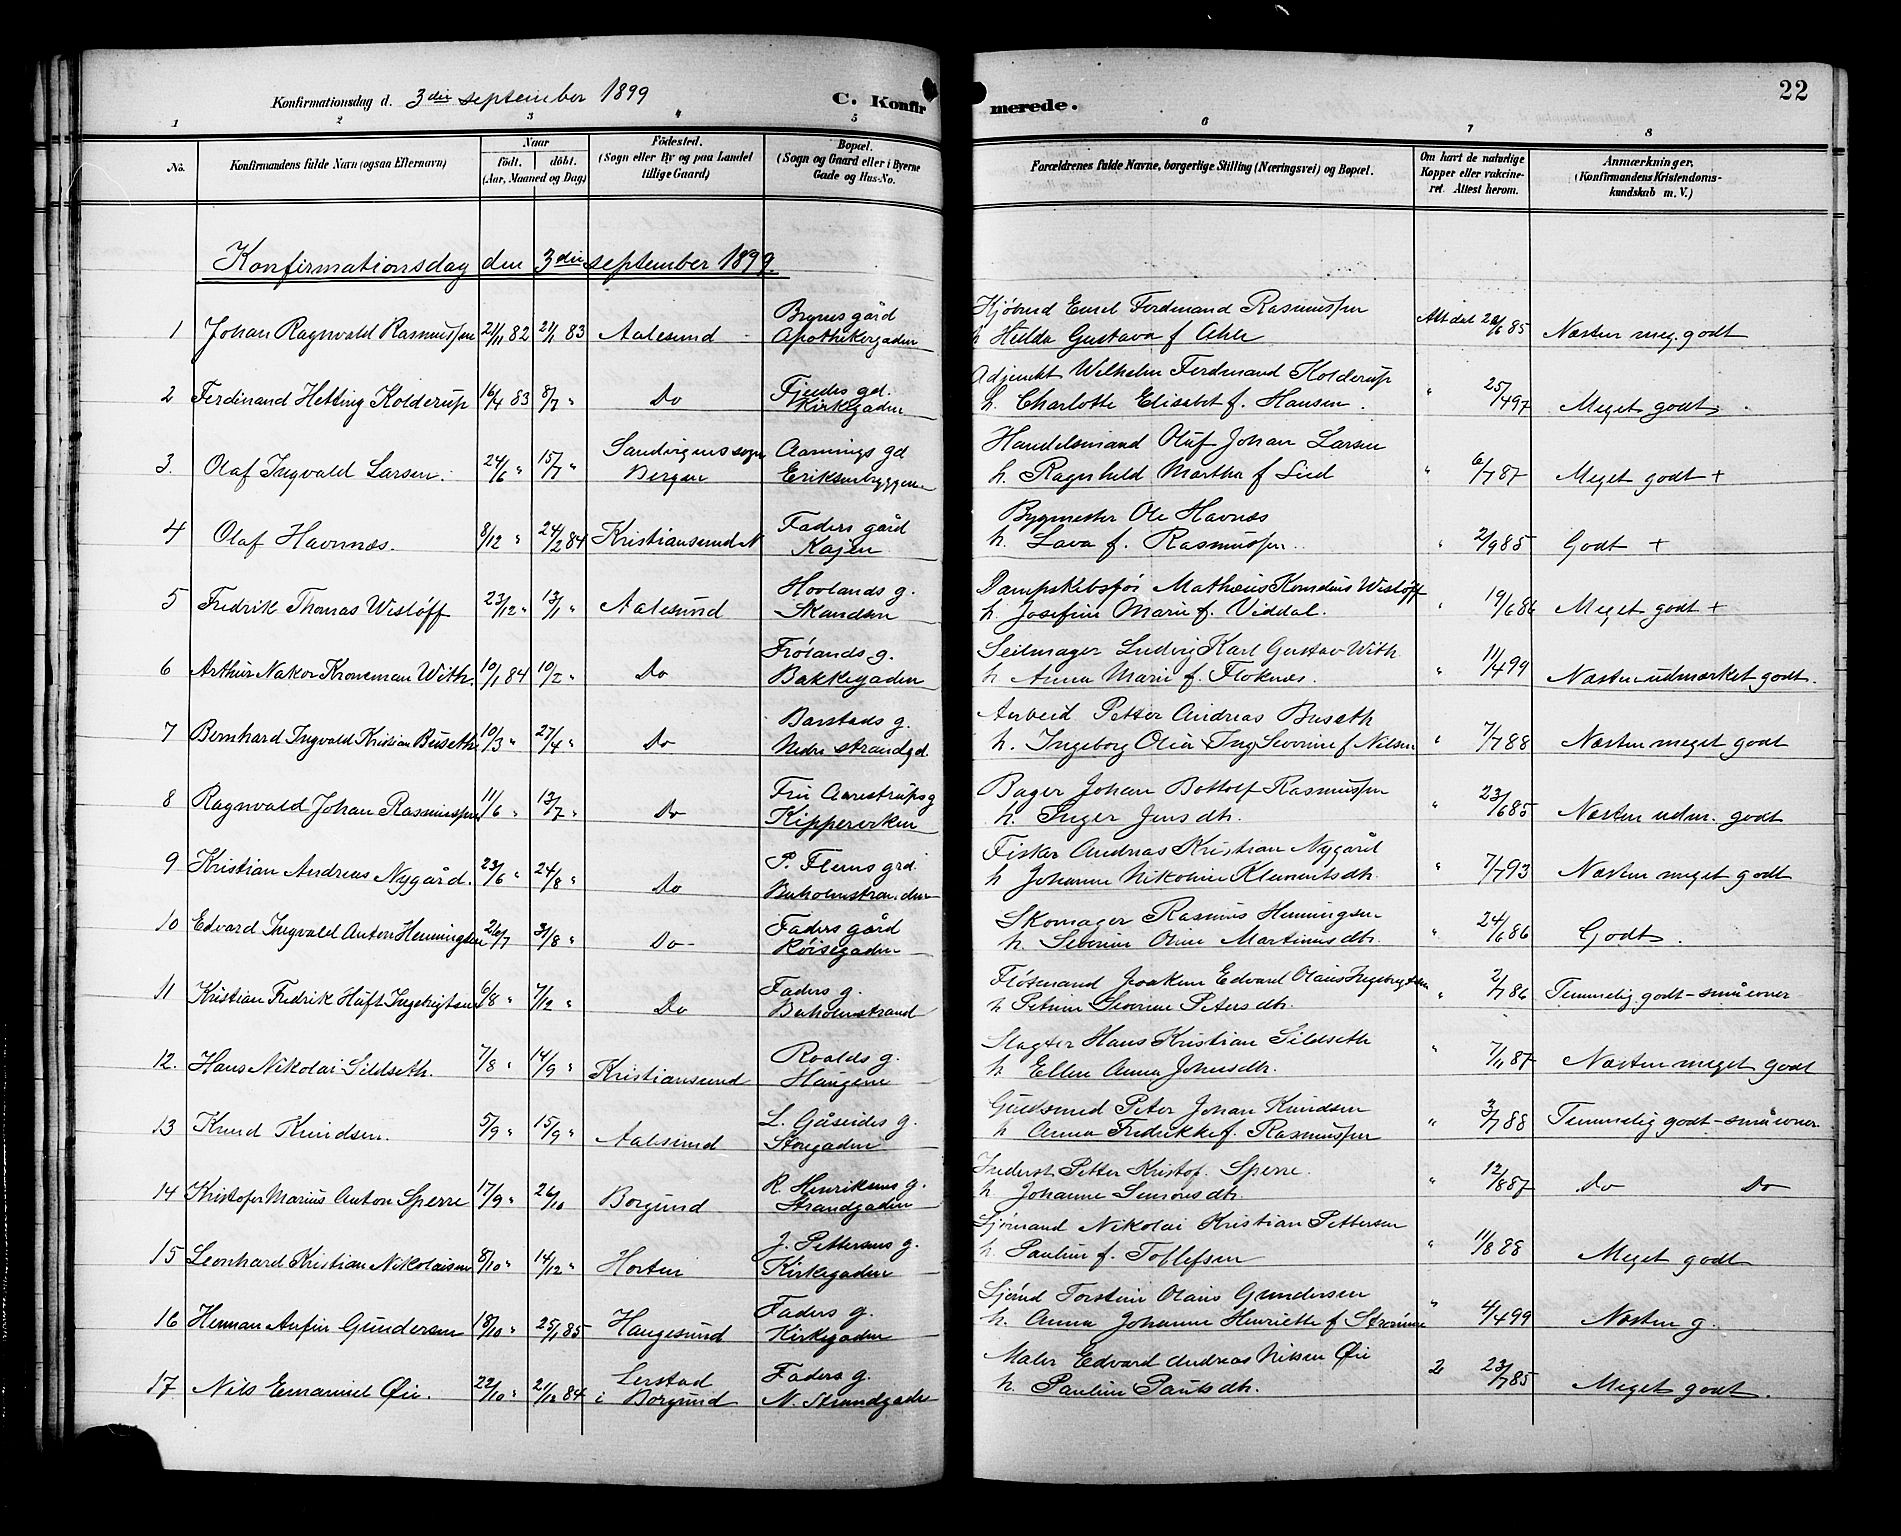 Konfirmationsdag d. 3die september 1899
C. Konfir
merede.
22
1 2 3 4 5 6 7 8
No.
Konfirmandens fulde Navn (ogsaa Efternavn)
Naar
født. døbt.
(Aar, Maaned og Dag)
Födested.
(Sogn eller By og paa Landet
tillige Gaard)
Bopæl.
(Sogn og Gaard eller i Byerne
Gade og Hus-No.
Forældrenes fulde Navne, borgerlige Stilling (Næringsvei) og Bopæl.
Om havt de naturlige
Kopper eller vakcine-
ret. Attest herom.
Anmærkninger,
(Konfirmandens Kristendoms-
kundskab m. V.)
Konfirmationsdag den 3die september 1899.
Bynes gård Kjøbmd Emil Ferdinand Rasmussen
1 Johan Ragnvald Rasmussen 21/11 82 21/1 83 Aalesund Apothekergaden h Hulda Gustava f Ahle Attdal 20/6 85 Næsten meg. godt
Fjeldes gd. Adjunkt Wilhelm Ferdinand Kolderup
2 Ferdinand Hetting Kolderup 16/4 83 8/7 " Do Kirkegaden h. Charlotte Elisabet f. Hansen. " 25/4 97 Meget godt
Sandvigens sogn Aarnings gd Handelsmand Oluf Johan Larsen
3. Olaf Ingvald Larsen. 24/6 " 15/7 " Bergen Eriksenbryggen h. Ragnhild Martha f Lied " 6/7 87 Meget godt +
Faders gård Bygmester Ole Havnæs
4 Olaf Havnnæs. 8/12 " 24/2 84 Kristiansund N Kajen h. Lava f. Rasmussen. " 2/9 85 Godt +
Hovlands g. Dampskibsfør Mathæus Kornelius Wisløff
5 Fredrik Thomas Wisløff 23/12 " 13/1 " Aalesund Skandsen h. Josefine Marie f. Viddal. " 19/6 86 Meget godt +
Frølands g. Seilmager Ludvig Karl Gustav With
6 Arthur Nakor Kroneman With. 10/1 84 10/2 " Do Bakkegaden h Anna Marie f. Floknes. " 11/4 99 Næsten udmærket godt.
Barstads g. Arbeid Petter Andreas Buseth
7 Bernhard Ingvald Kristian Buseth 10/3 " 27/4 " Do Nedre strandgd. h. Ingeborg Olia Ing Severine f Nilsen " 7/7 88 Næsten meget godt
Fru Aarestrups g Bager Johan Bottolf Rasmussen
8 Ragnvald Johan Rasmussen 11/6 " 13/7 " Do Kipperviken h. Inger Jensdtr. " 23/6 85 Næsten udm. godt
P. Flems grd. Fisker Andreas Kristian Nygård
9 Kristian Andreas Nygård. 23/6 " 24/8 " Do Buholmstranden h Johanne Nikoline Klementsdtr. " 7/7 93 Næsten meget godt
Faders gård Skomager Rasmus Henningsen
10 Edvard Ingvald Anton Henningsen 26/7 31/8 " Do Røisegaden h. Severine Oline Martinusdtr. " 24/6 86 Godt.
Faders g. Fløtmand Joakim Edvard Olaus Ingebrigtsen
11 Kristian Fredrik Huft Ingebrigtsen 6/8 " 7/12 " Do Buholmstrand h Petrine Severine Petersdtr. " 2/7 86 Temmelig godt - små evner
Roalds g. Slagter Hans Kristian Sildseth
12. Hans Nikolai Sildseth. 7/8 " 14/9 " Kristiansund Haugene h. Ellen Anna Johnsdtr. " 7/1 87 Næsten meget godt
L. Gåseides g. Guldsmed Peter Johan Knudsen
13 Knud Knudsen. 5/9 " 15/9 " Aalesund Storgaden h Anna Fredrikke f. Rasmussen " 3/7 88 Temmelig godt - små evner
R. Henriksens g. Inderst Petter Kristof. Sperre.
14 Kristofer Marius Anton Sperre 17/9 " 26/10 Borgund Strandgaden h. Johanne Simonsdtr. " 12/8 87 Do Do
J. Pettersens g. Sjømand Nikolai Kristian Pettersen
15 Leonhard Kristian Nikolaisen 8/10 " 14/12 " Horten Kirkegaden h. Pauline f. Tollefsen " 11/8 88 Meget godt
Faders g. Sjømd Torstein Olaus Gundersen
16 Herman Anfin Gundersen 18/10 " 25/1 85 Haugesund Kirkegaden h. Anna Johanne Henriette f " 4/4 99 Næsten g.
Lerstad Faders g. Maler Edvard Andreas Nilsen Øie
17 Nils Emanuel Øie. 22/10 " 21/12 84 i Borgund N. Strandgaden h. Pauline Paulsdtr. 2 23/7 85 Meget godt.